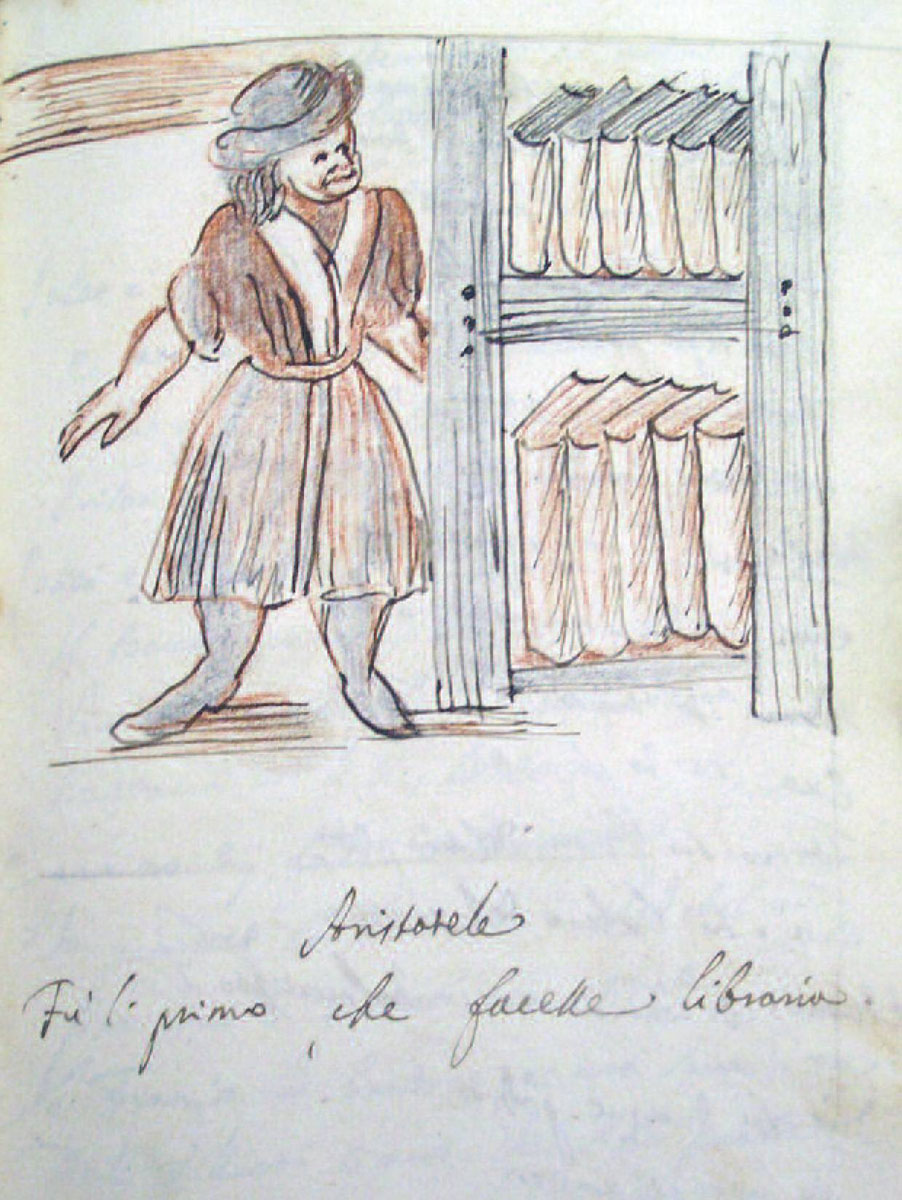 Aristotele
Fù il primo che facesse libraria.